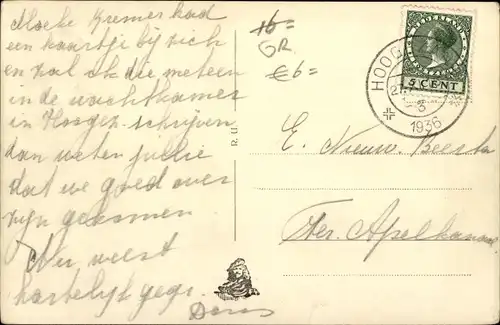 Moeke Kremer had
een kaartje bij zich
en zal ik die meteen
in de wachtkamer
in Hoogez. schrijven
dan weten jullie
dat we goed over
zijn gekomen
Nu weest
hartelijk gegr.
Dens
16=
GR
€6=
NEDERLAND
5 CENT
HOOG
1936
R. U.
E. Nieuw. Beerta
Ter Apelkanaal